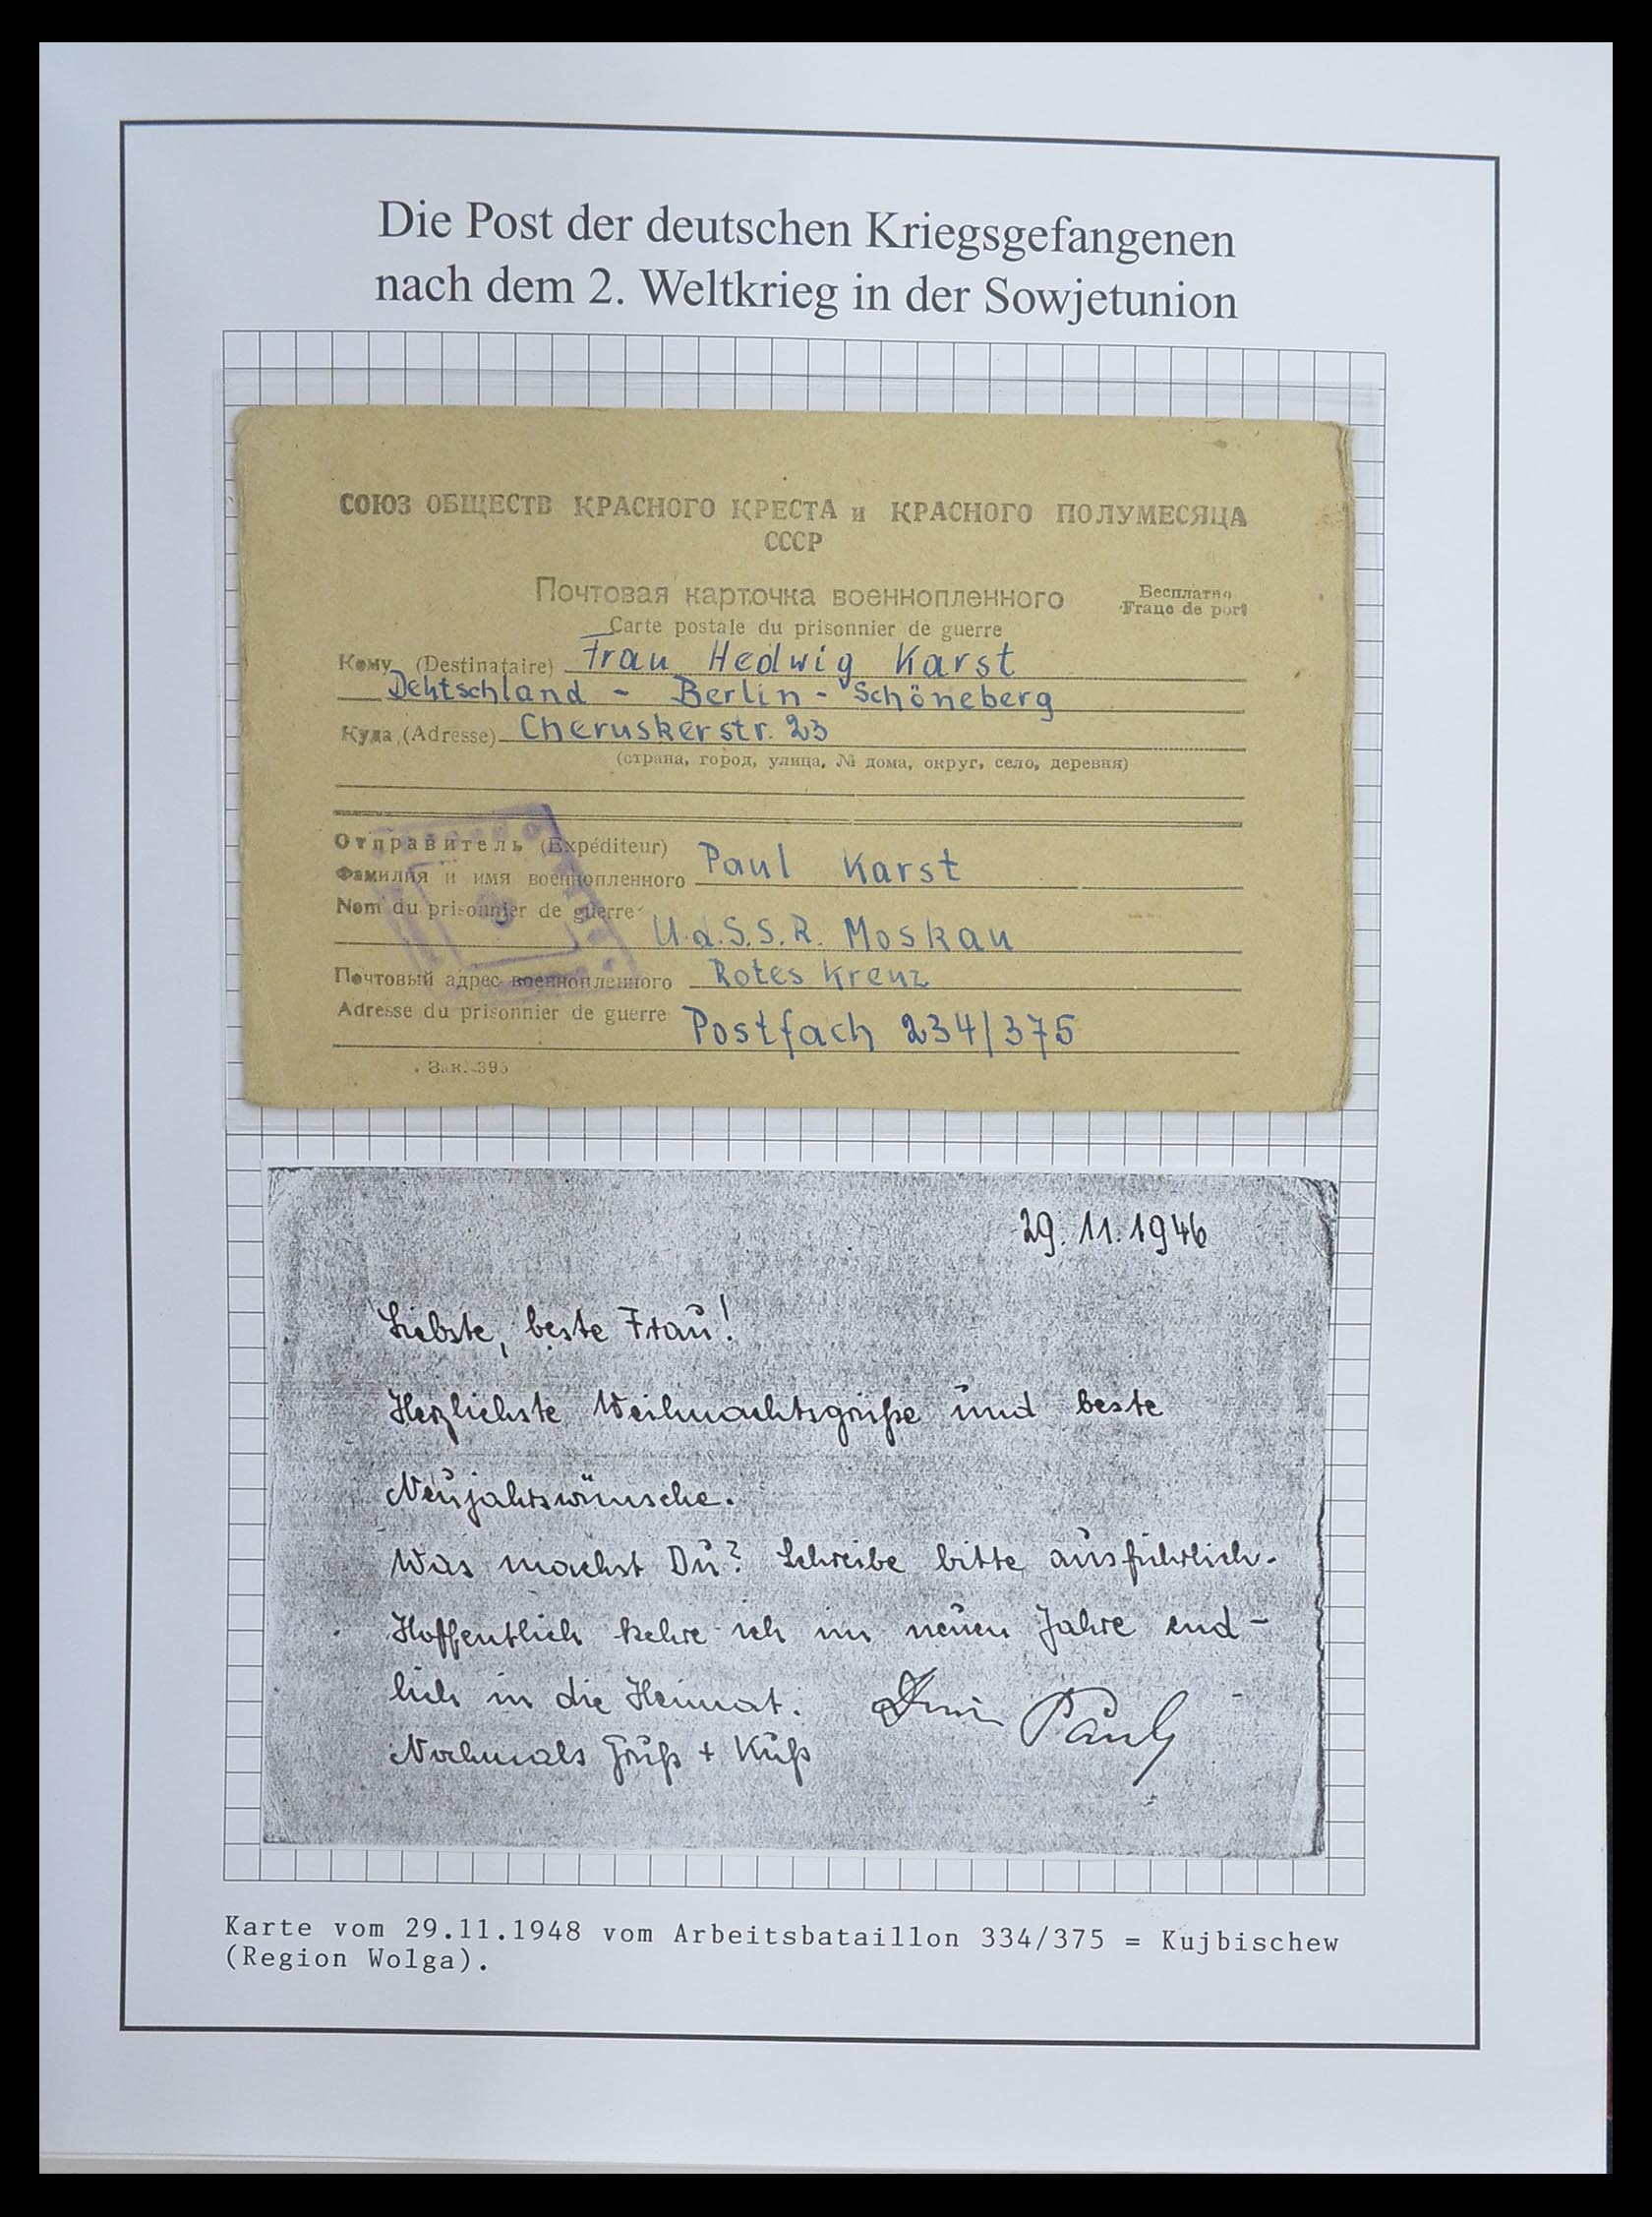 Die Post der deutschen Kriegsgefangenen
nach dem 2. Weltkrieg in der Sowjetunion
СОЮЗ ОБЩЕСТВ КРАСНОГО КРЕСТА и КРАСНОГО ПОЛУМЕСЯЦА
СССР
Почтовая карточка военнопленного
Бесплатно
Carte postale du prisonnier de guerre
Franc de port
Кому (Destinataire) Frau Hedwig Karst
Deutschland - Berlin - Schöneberg
Куда (Adresse) Cheruskerstr. 23
(страна, город, улица, № дома, округ, село, деревня)
Отправитель (Expéditeur)
Фамилия и имя военнопленного Paul Karst
Nom du prisonnier de guerre
U.d.S.S.R. Moskau
Почтовый адрес военнопленного Rotes Kreuz
Adresse du prisonnier de guerre Postfach 234/375
Зак. 395
29.11.1946
Liebste, beste Frau!
Herzlichste Weihnachtsgrüße und beste
Neujahrswünsche.
Was machst Du? Schreibe bitte ausführlich.
Hoffentlich kehre ich im neuen Jahre end-
lich in die Heimat. Dein Paul
Nochmals Gruß + Kuß
Karte vom 29.11.1948 vom Arbeitsbataillon 334/375 = Kujbischew
(Region Wolga).